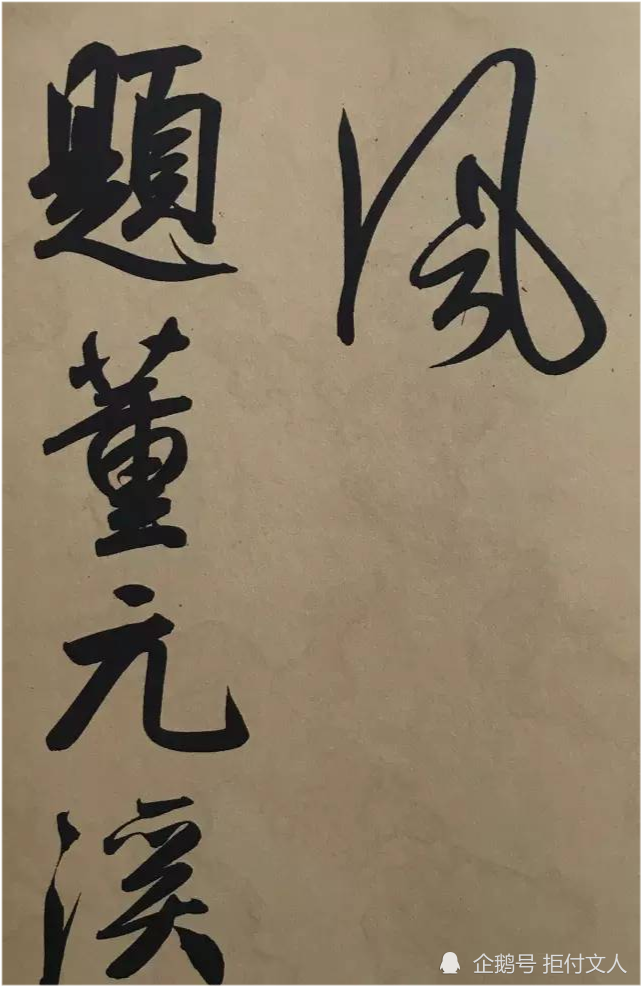 風
題董元溪
企鹅号 拒付文人